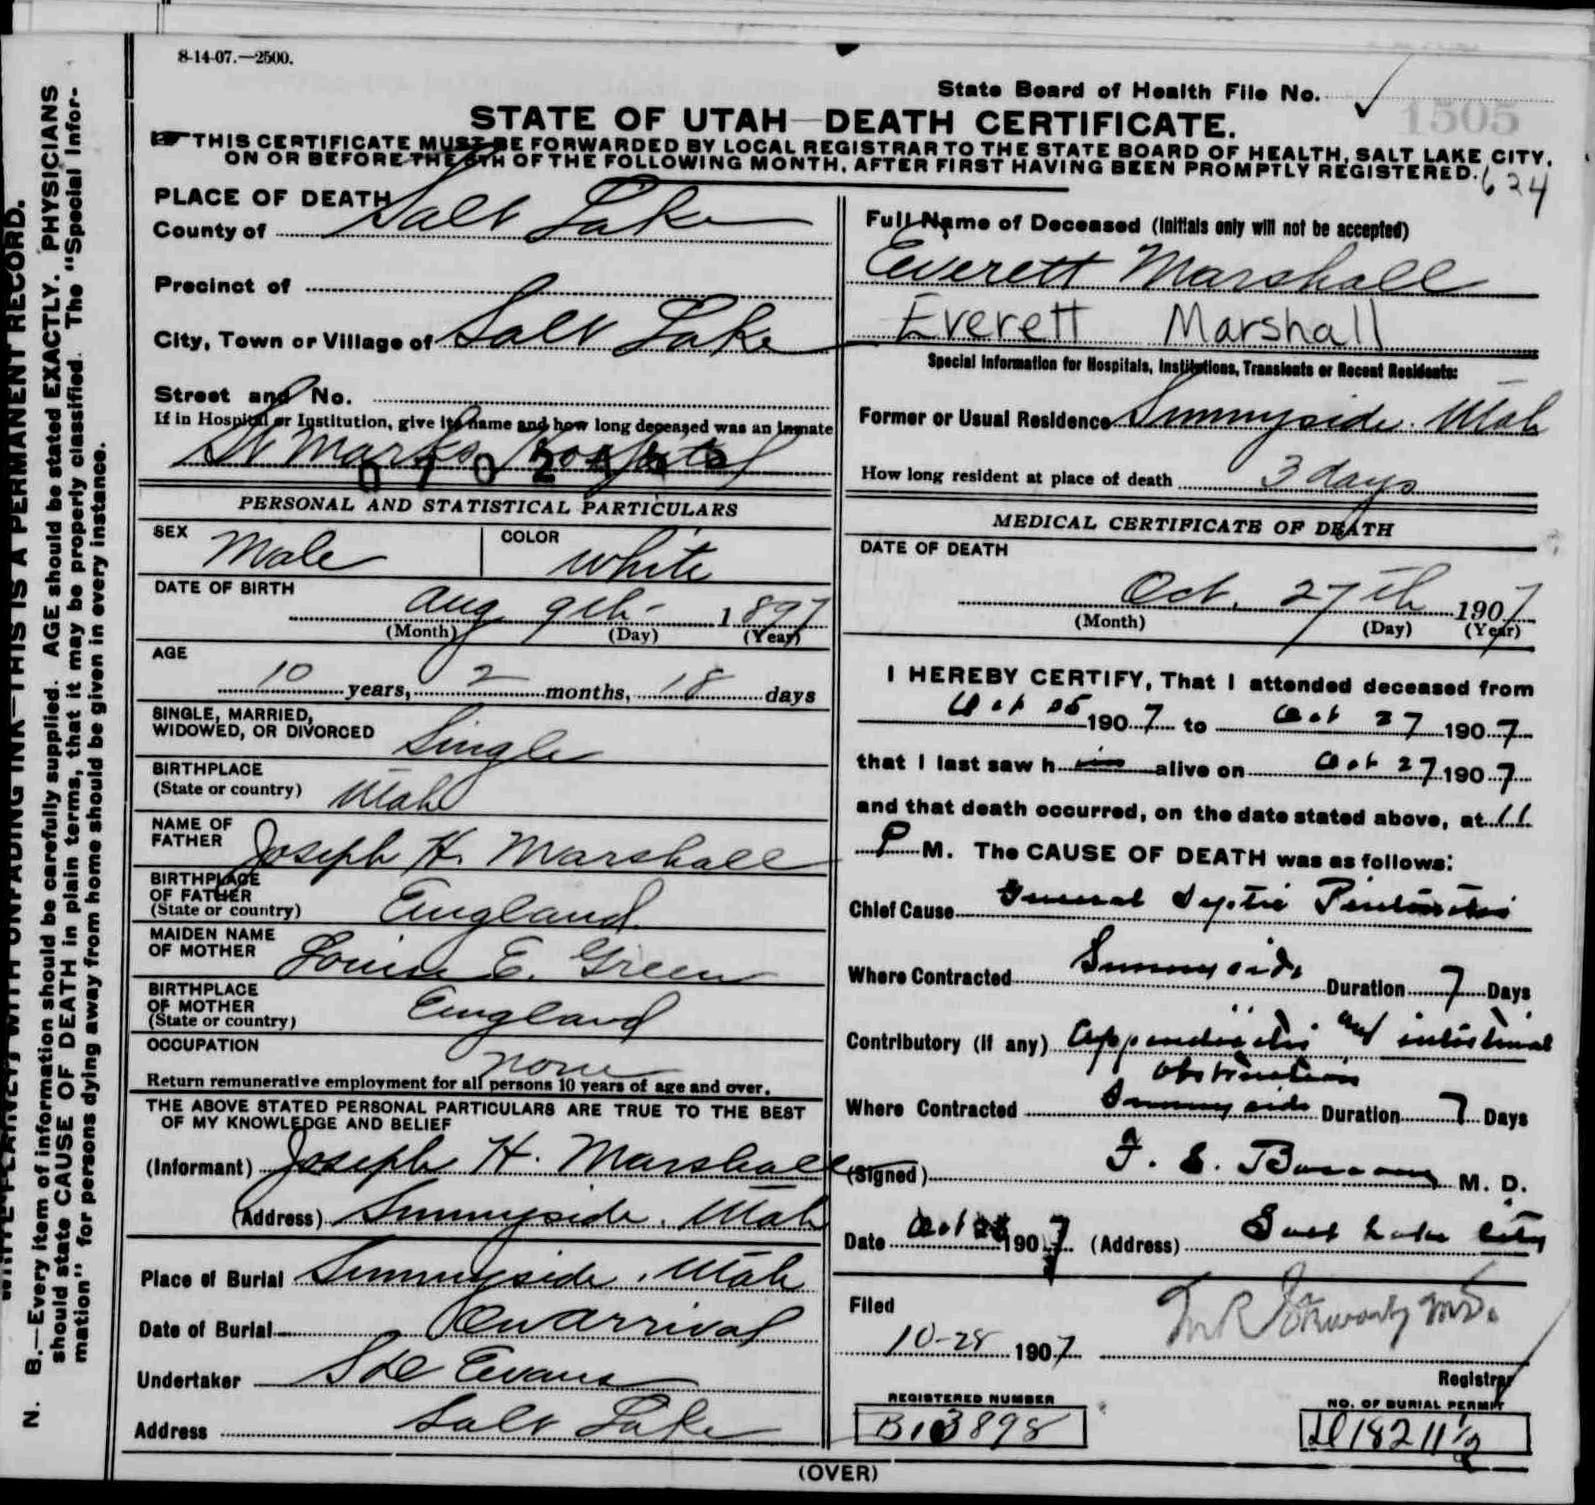 8-14-07.—2500.
State Board of Health File No. 1505
STATE OF UTAH—DEATH CERTIFICATE.
THIS CERTIFICATE MUST BE FORWARDED BY LOCAL REGISTRAR TO THE STATE BOARD OF HEALTH, SALT LAKE CITY,
ON OR BEFORE THE 5TH OF THE FOLLOWING MONTH, AFTER FIRST HAVING BEEN PROMPTLY REGISTERED.
624
PLACE OF DEATH
County of Salt Lake
Precinct of
City, Town or Village of Salt Lake
Street and No.
If in Hospital or Institution, give its name and how long deceased was an inmate
St Marks Hospital
PERSONAL AND STATISTICAL PARTICULARS
SEX Male COLOR White
DATE OF BIRTH
Aug 9th 1897
(Month) (Day) (Year)
AGE
10 years, 2 months, 18 days
SINGLE, MARRIED,
WIDOWED, OR DIVORCED Single
BIRTHPLACE
(State or country) Utah
NAME OF
FATHER Joseph H. Marshall
BIRTHPLACE
OF FATHER
(State or country) England
MAIDEN NAME
OF MOTHER Louise E. Green
BIRTHPLACE
OF MOTHER
(State or country) England
OCCUPATION none
Return remunerative employment for all persons 10 years of age and over.
THE ABOVE STATED PERSONAL PARTICULARS ARE TRUE TO THE BEST
OF MY KNOWLEDGE AND BELIEF
(Informant) Joseph H. Marshall
(Address) Sunnyside, Utah
Place of Burial Sunnyside, Utah
Date of Burial On arrival
Undertaker S D Evans
Address Salt Lake
Full Name of Deceased (Initials only will not be accepted)
Everett Marshall
Everett Marshall
Special Information for Hospitals, Institutions, Transients or Recent Residents:
Former or Usual Residence Sunnyside. Utah
How long resident at place of death 3 days
MEDICAL CERTIFICATE OF DEATH
DATE OF DEATH
Oct. 27th 1907
(Month) (Day) (Year)
I HEREBY CERTIFY, That I attended deceased from
Oct 25 1907 to Oct 27 1907
that I last saw h im alive on Oct 27 1907
and that death occurred, on the date stated above, at 11
P M. The CAUSE OF DEATH was as follows:
Chief Cause General Septic Peritonitis
Where Contracted Sunnyside Duration 7 Days
Contributory (if any) Appendicitis and intestinal
obstruction
Where Contracted Sunnyside Duration 7 Days
(Signed) F. E. M. D.
Date Oct 28 1907 (Address) Salt Lake City
Filed
10-28 1907
Registrar
REGISTERED NUMBER
B13898
NO. OF BURIAL PERMIT
D18211½
(OVER)
WRITE PLAINLY, WITH UNFADING INK—THIS IS A PERMANENT RECORD.
N. B.—Every item of information should be carefully supplied. AGE should be stated EXACTLY. PHYSICIANS
should state CAUSE OF DEATH in plain terms, that it may be properly classified. The "Special Infor-
mation" for persons dying away from home should be given in every instance.